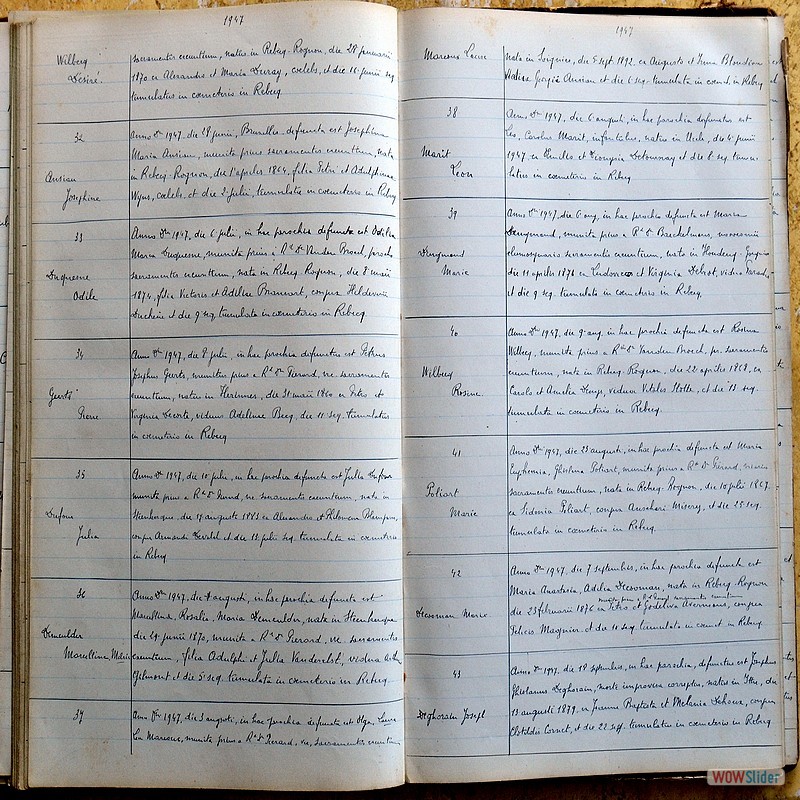 1947
Wilberg
Désiré.
sacramentis exeuntium, natus in Rebecq-Rognon, die 28
1870 ex Alexandro et Maria Duray, coelebs, et die 16 junii seq.
tumulatus in coemeterio in Rebecq.
32
Ansiau
Josephine
Anno Dni 1947, die 28 junii, Bruxelles defuncta est Josephina
Maria Ansiau, munita prius sacramentis exeuntium, nata
in Rebecq-Rognon, die 1 aprilis 1864, filia Petri et Adolphinae
Wyns, coelebs, et die 2 julii, tumulata in coemeterio in Rebecq
33
Duquesne
Odile
Anno Dni 1947, die 6 julii, in hac parochia defuncta est Odilia
Maria Duquesne, munita prius à Rdo Do Vanden Broeck, parocho
sacramentis exeuntium, nata in Rebecq Rognon, die 8 maii
1874, filia Victoris et Adelinae conjux
Duchêne et die 9 seq. tumulata in coemeterio in Rebecq.
34
Geerts
Pierre
Anno Dni 1947, die 8 julii, in hac parochia defunctus est Petrus
Josephus Geerts, munitus prius a Rdo Do Pierard, vic. sacramentis
exeuntium, natus in Herinnes, die 31 maii 1860 ex Petro et
Virginia Decorte, viduus Adelinae Becq, die 11 seq. tumulatus
in coemeterio in Rebecq
35
Dufour
Julia
Anno Dni 1947, die 10 julii, in hac parochia defuncta est Julia Dufour
munita prius a Rdo Do Pierard, vic. sacramentis exeuntium, nata in
Steenkerque, die 19 augusti 1883 ex Alexandro et Philomena
conjux Armandi et die 12 julii seq. tumulata in coemeterio
in Rebecq
36
Demeulder
Marcelline, Maria
Anno Dni 1947, die augusti, in hac parochia defuncta est
Marcellina, Rosalia, Maria Demeulder, nata in Steenkerque
die 24 junii 1870, munita a Rdo Do Pierard, vic. sacramentis
exeuntium, filia Adolphi et Julia Vanderelst, vidua
Gilmont et die 5 seq. tumulata in coemeterio in Rebecq.
37
Anno Dni 1947, die 3 augusti, in hac parochia defuncta est Olga, Laura
Marcoux, munita prius a Rdo Do Pierard, vic. sacramentis exeuntium
1947
Marcoux Laure
nata in Soignies, die 5 sept. 1892, ex Augusto et Irma Blondiau
Ansiau et die 6 seq. tumulata in coemet. in Rebecq
38
Marit
Léon
Anno Dni 1947, die 6 augusti, in hac parochia defunctus est
Leo, Carolus Marit, infantulus, natus in Uccle, die 4 junii
1947 ex et Georgia Detournay et die 8 seq. tumu-
latus in coemeterio in Rebecq
39
Dieugnand
Marie
Anno Dni 1947, die 6 aug. in hac parochia defuncta est Maria
munita prius a Rdo Do Baeckelmans,
sacramentis exeuntium, nata in Houdeng-
die 11 aprilis 1871 ex Ludovico et Virginia Debrot, vidua
et die 9 seq. tumulata in coemeterio in Rebecq.
40
Wilberg
Rosine
Anno Dni 1947, die 9 aug. in hac parochia defuncta est Rosina
Wilberg, munita prius a Rdo Do Vanden Broeck, par. sacramentis
exeuntium, nata in Rebecq-Rognon, die 22 aprilis 1868, ex
Carolo et Amelia vidua Vitalis et die 13 seq.
tumulata in coemeterio in Rebecq.
41
Poliart
Marie
Anno Dni 1947, die 23 augusti, in hac parochia defuncta est Maria
Euphemia, Ghislena Poliart, munita prius a Rdo D. Pierard, vicario
sacramentis exeuntium, nata in Rebecq-Rognon, die 10 julii 1867
ex Sidonia Poliart, conjux Misercq, et die 25 seq.
tumulata in coemeterio in Rebecq.
42
Decooman Marie
Anno Dni 1947, die 7 septembris, in hac parochia defuncta est
Maria Anastasia, Adelia Decooman, nata in Rebecq-Rognon
munita prius a Rdo Pierard sacramentis exeuntium
die 23 februarii 1876 ex Petro et Godeliva conjux
Felicis et die 10 seq. tumulata in coemet. in Rebecq.
43
Deghorain Joseph
Anno Dni 1947, die 18 septembris, in hac parochia, defunctus est Josephus
Ghislanus Deghorain, morte improvisa correptus, natus in Ittre, die
13 augusti 1879, ex Joanne Baptista et Melania conjux
Clotildis Cornet, et die 22 sept. tumulatus in coemeterio in Rebecq.
WOWSlider